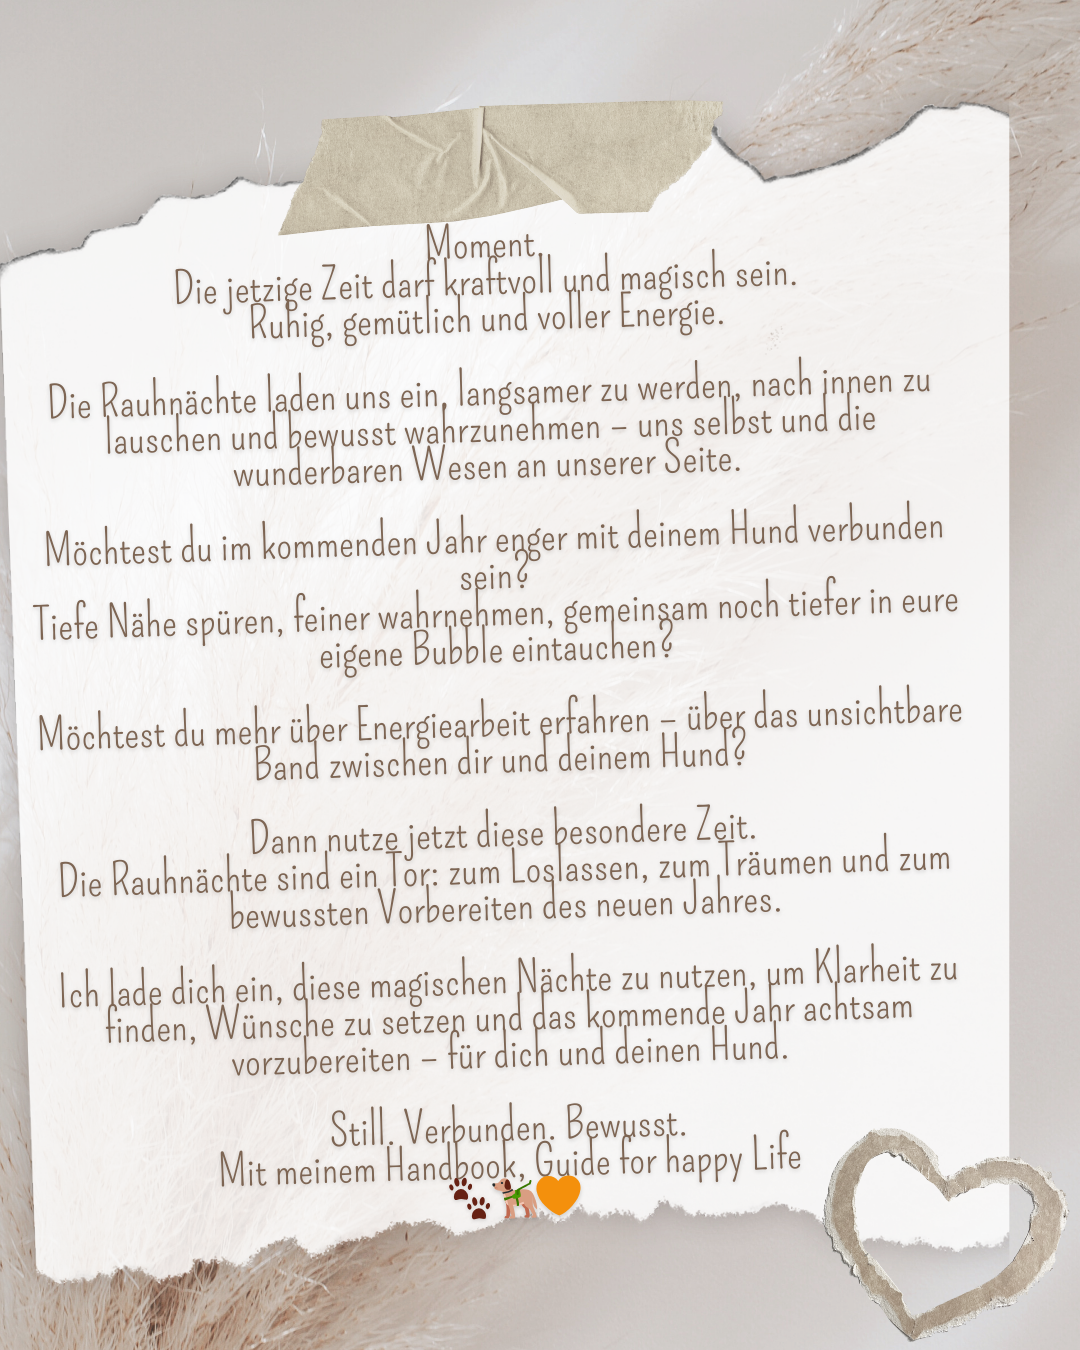 Moment,
Die jetzige Zeit darf kraftvoll und magisch sein.
Ruhig, gemütlich und voller Energie.
Die Rauhnächte laden uns ein, langsamer zu werden, nach innen zu
lauschen und bewusst wahrzunehmen – uns selbst und die
wunderbaren Wesen an unserer Seite.
Möchtest du im kommenden Jahr enger mit deinem Hund verbunden
sein?
Tiefe Nähe spüren, feiner wahrnehmen, gemeinsam noch tiefer in eure
eigene Bubble eintauchen?
Möchtest du mehr über Energiearbeit erfahren – über das unsichtbare
Band zwischen dir und deinem Hund?
Dann nutze jetzt diese besondere Zeit.
Die Rauhnächte sind ein Tor: zum Loslassen, zum Träumen und zum
bewussten Vorbereiten des neuen Jahres.
Ich lade dich ein, diese magischen Nächte zu nutzen, um Klarheit zu
finden, Wünsche zu setzen und das kommende Jahr achtsam
vorzubereiten – für dich und deinen Hund.
Still. Verbunden. Bewusst.
Mit meinem Handbook, Guide for happy Life
🐾🐕‍🦺🧡